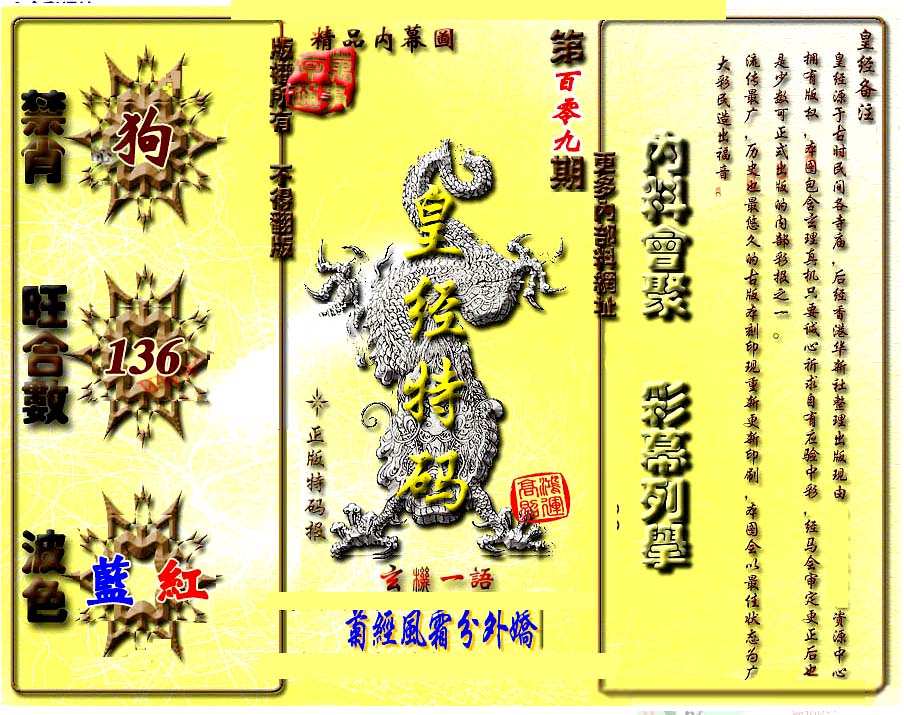 精品内幕圖
第百零九期
版權所有 不得翻版
更多內部料網址
禁肖
狗
旺合數
136
波色
藍 紅
皇经特码
正版特码报
鴻運高照
玄機一語
菊經風霜分外嬌
内料會聚
彩幕列舉
皇经备注
皇经源于古时民间各寺庙，后经香港华新社整理出版现由 资源中心
拥有版权，本图包含玄理真机只要诚心祈求自有应验中彩，经马会审定更正后也
是少数可正式出版的内部彩报之一。
流传最广，历史也最悠久的古版本刻印现重新更新印刷，本图会以最佳状态为广
大彩民造出福音